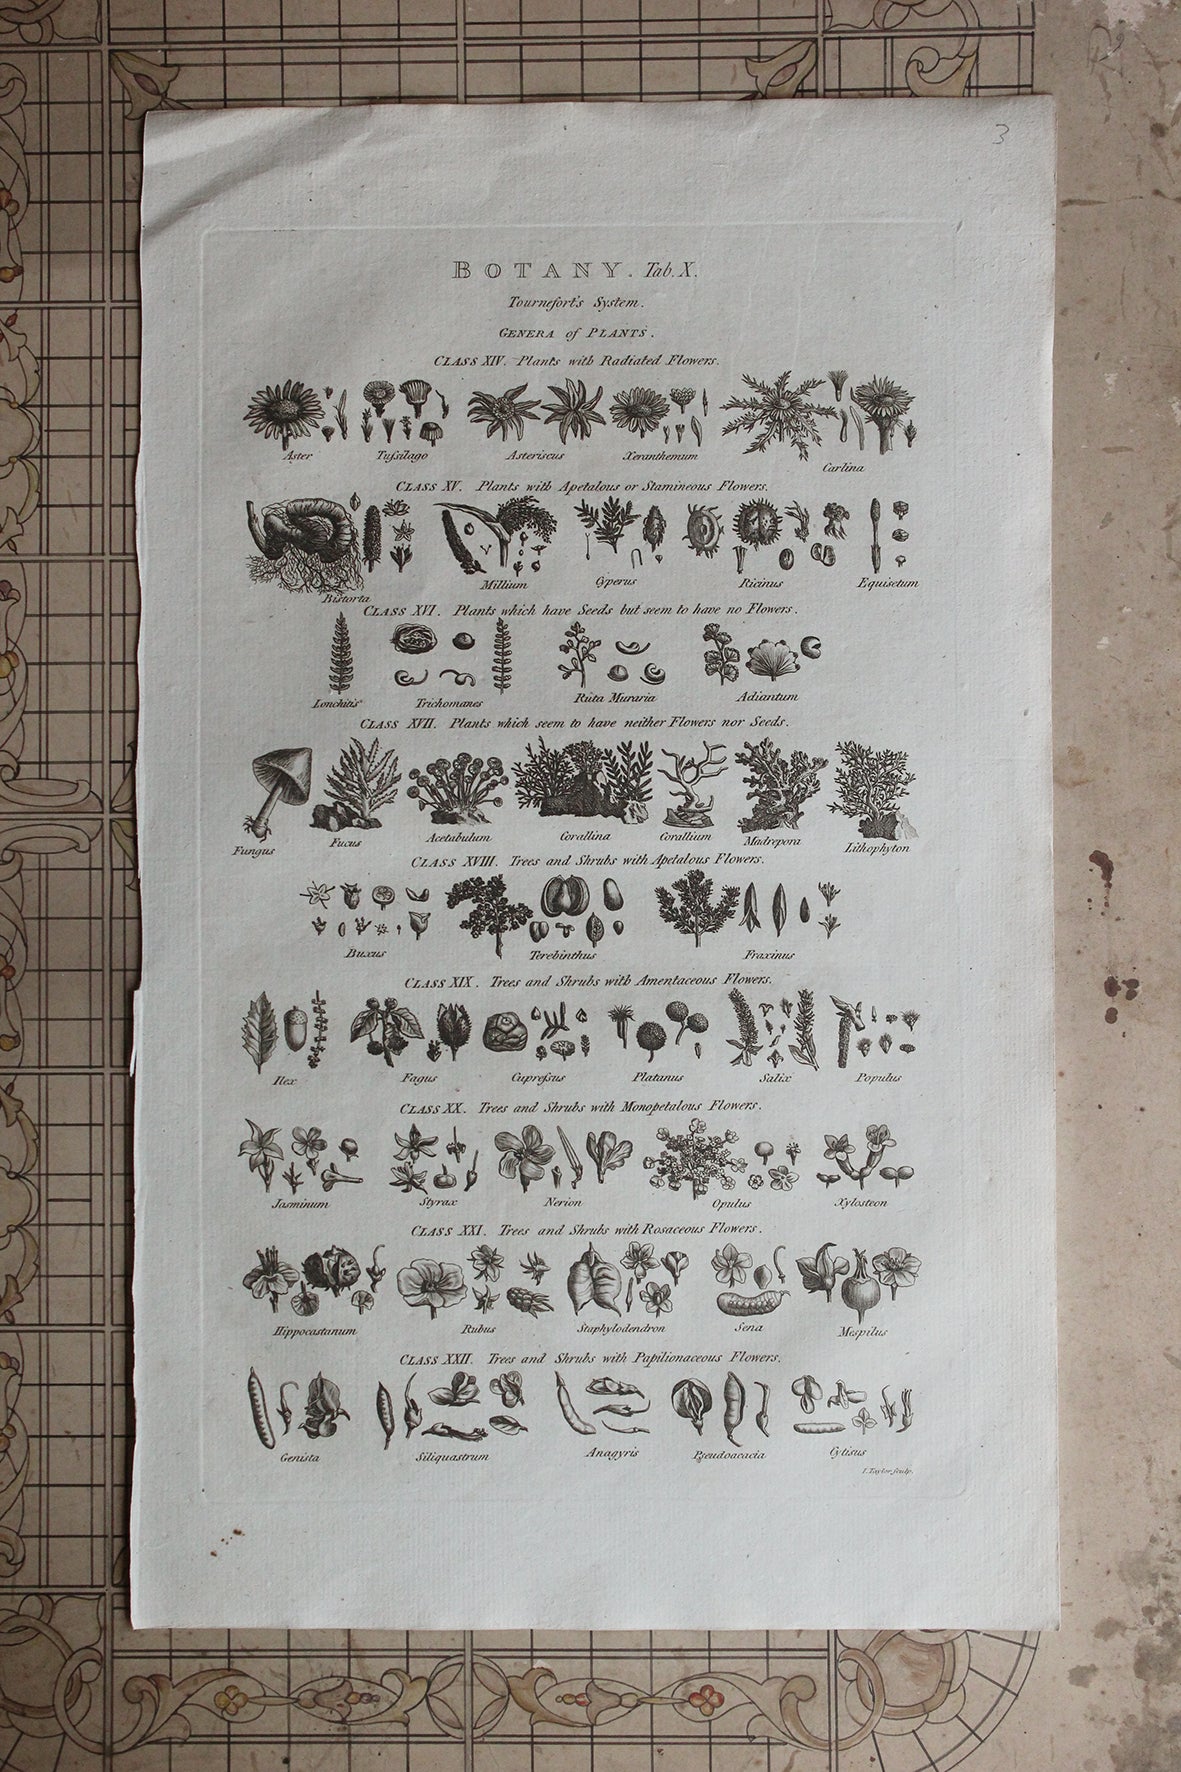 3
BOTANY. Tab. X.
Tournefort's System.
GENERA of PLANTS.
CLASS XIV. Plants with Radiated Flowers.
Aster Tuſsilago Asteriscus Xeranthemum Carlina
CLASS XV. Plants with Apetalous or Stamineous Flowers.
Bistorta Millium Cyperus Ricinus Equisetum
CLASS XVI. Plants which have Seeds but seem to have no Flowers.
Lonchitis Trichomanes Ruta Muraria Adiantum
CLASS XVII. Plants which seem to have neither Flowers nor Seeds.
Fungus Fucus Acetabulum Corallina Corallium Madrepora Lithophyton
CLASS XVIII. Trees and Shrubs with Apetalous Flowers.
Buxus Terebinthus Fraxinus
CLASS XIX. Trees and Shrubs with Amentaceous Flowers.
Ilex Fagus Cupreſsus Platanus Salix Populus
CLASS XX. Trees and Shrubs with Monopetalous Flowers.
Jasminum Styrax Nerion Opulus Xylosteon
CLASS XXI. Trees and Shrubs with Rosaceous Flowers.
Hippocastanum Rubus Staphylodendron Sena Mespilus
CLASS XXII. Trees and Shrubs with Papilionaceous Flowers.
Genista Siliquastrum Anagyris Pseudoacacia Cytisus
I. Taylor sculp.